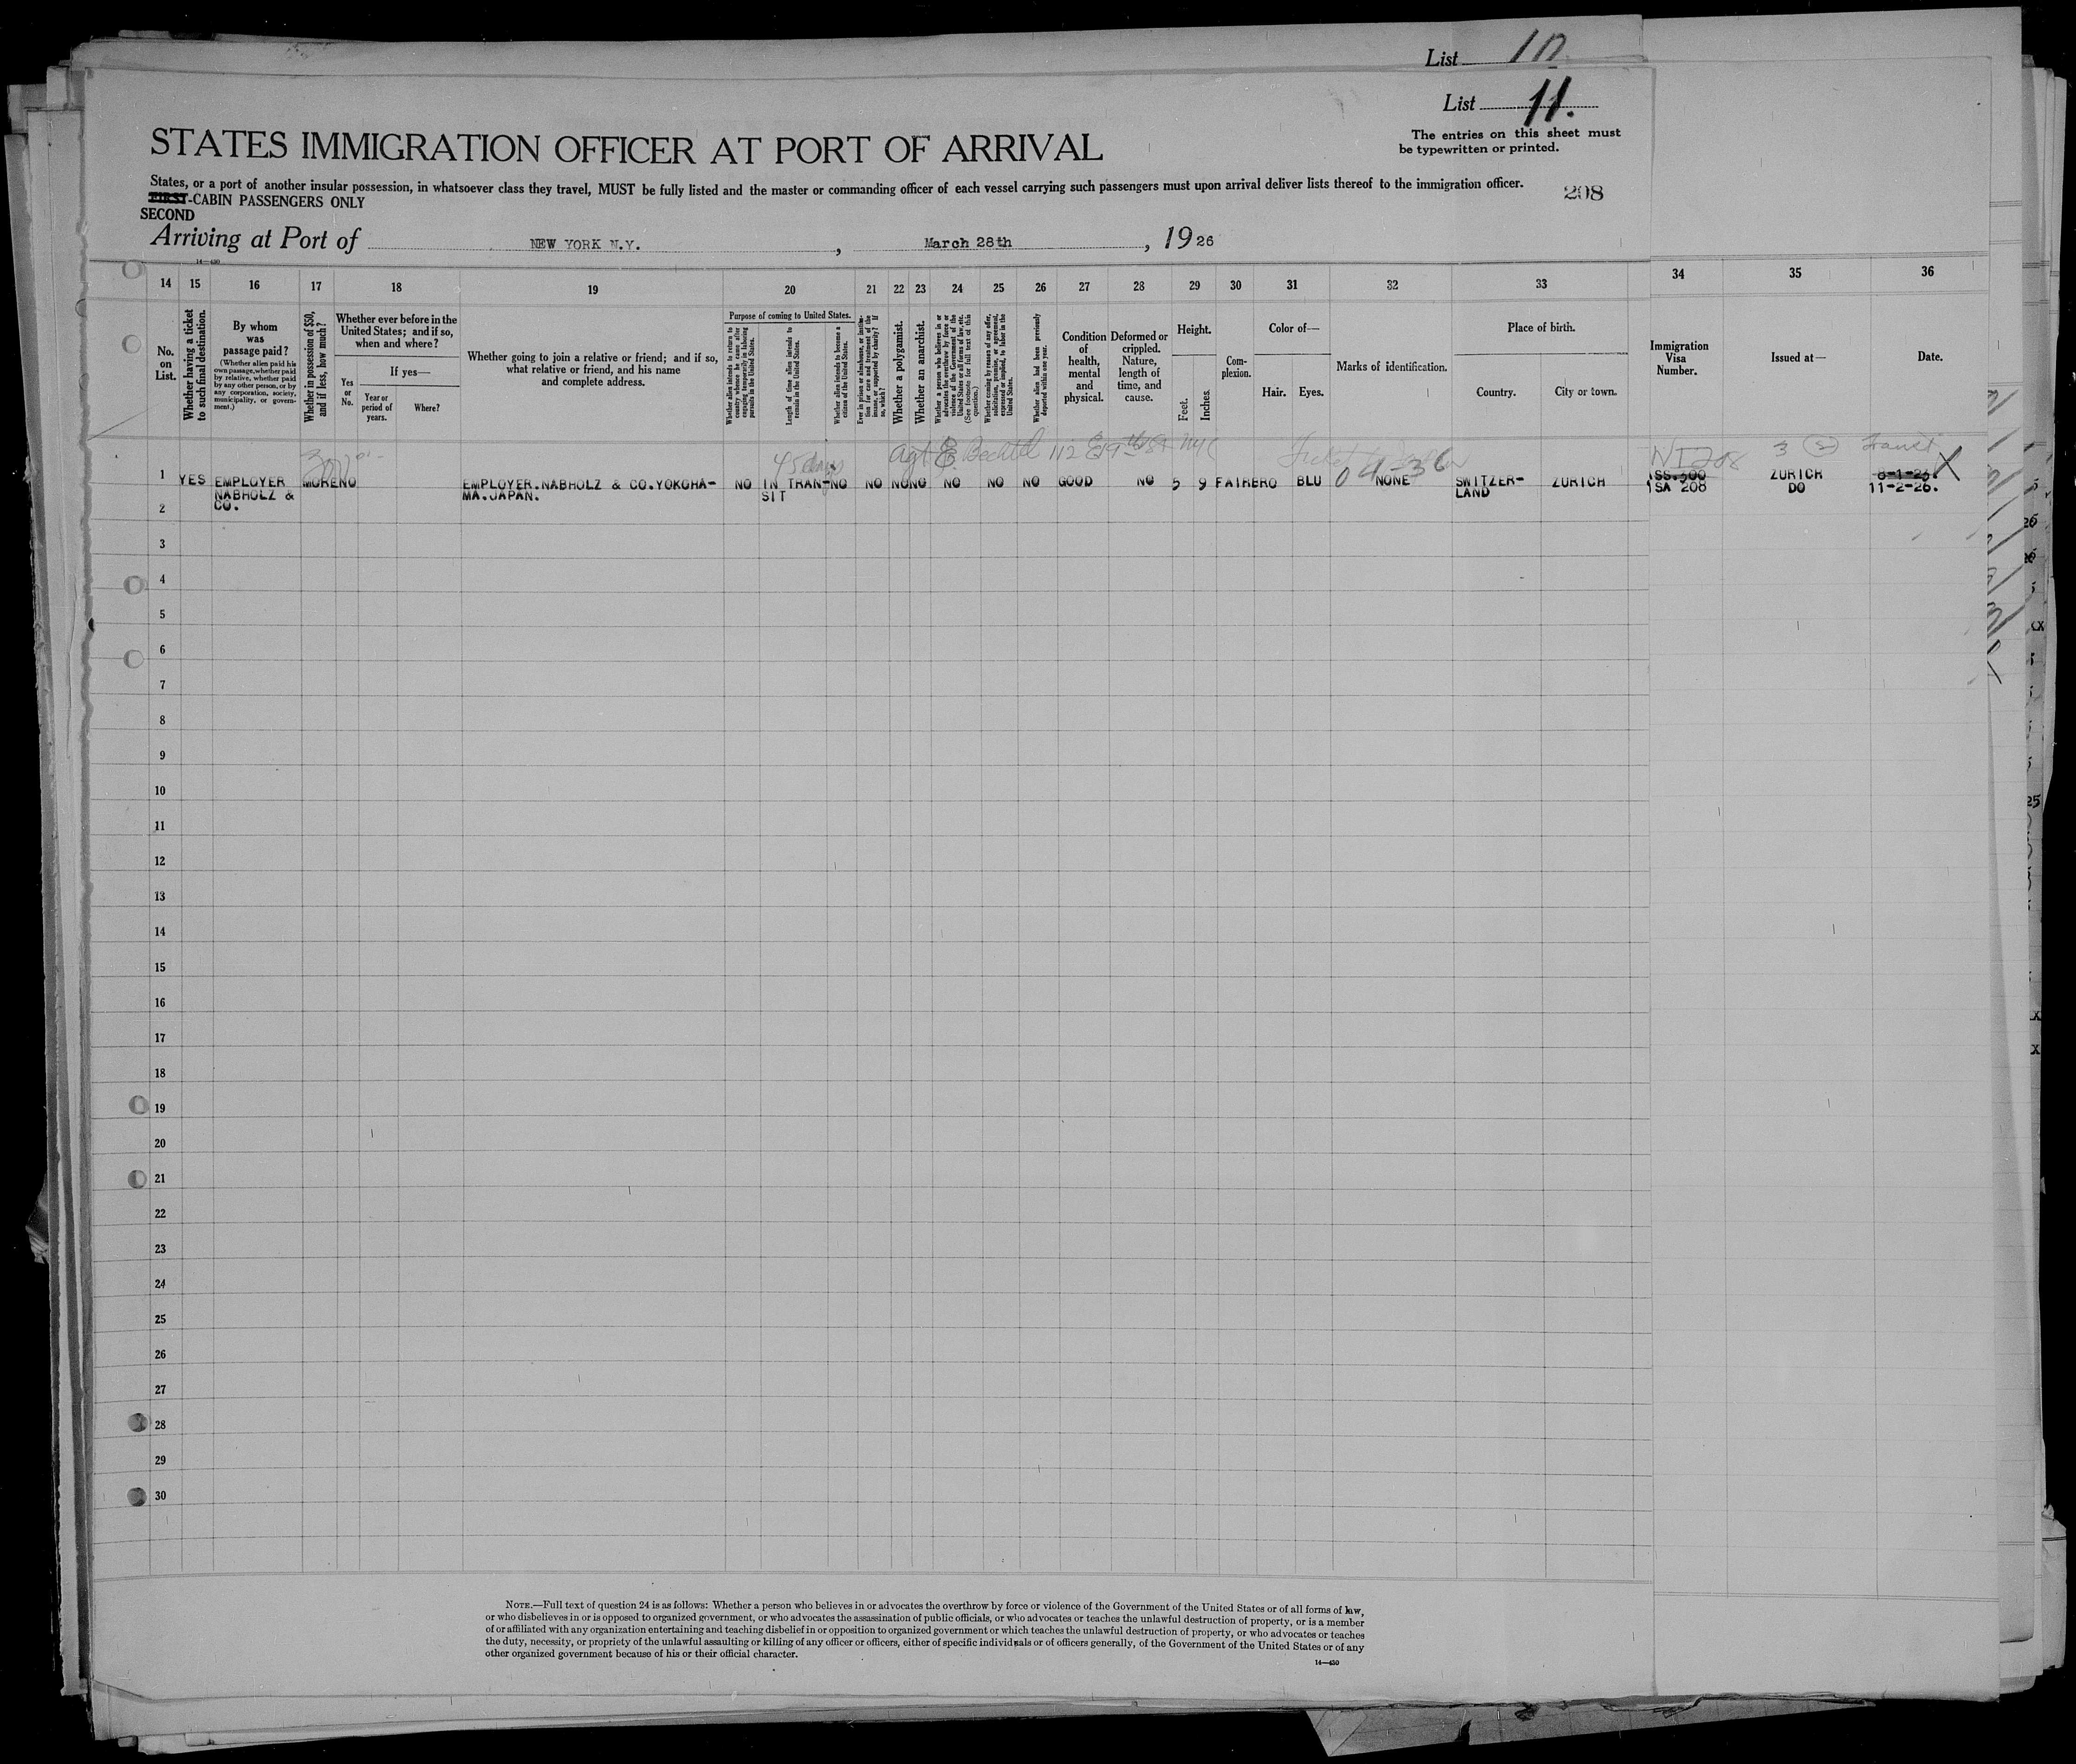 List 10
List 11.
The entries on this sheet must
be typewritten or printed.
STATES IMMIGRATION OFFICER AT PORT OF ARRIVAL
States, or a port of another insular possession, in whatsoever class they travel, MUST be fully listed and the master or commanding officer of each vessel carrying such passengers must upon arrival deliver lists thereof to the immigration officer.
208
FIRST-CABIN PASSENGERS ONLY
SECOND
Arriving at Port of NEW YORK N.Y., March 28th, 1926
14—430
14 15 16 17 18 19 20 21 22 23 24 25 26 27 28 29 30 31 32 33 34 35 36
No. on List.
Whether having a ticket to such final destination.
By whom was passage paid?
(Whether alien paid his own passage, whether paid by relative, whether paid by any other person, or by any corporation, society, municipality, or government.)
Whether in possession of $50, and if less, how much?
Whether ever before in the United States; and if so, when and where?
Yes or No.
If yes—
Year or period of years.
Where?
Whether going to join a relative or friend; and if so, what relative or friend, and his name and complete address.
Purpose of coming to United States.
Whether alien intends to return to country whence he came after engaging temporarily in laboring pursuits in the United States.
Length of time alien intends to remain in the United States.
Whether alien intends to become a citizen of the United States.
Ever in prison or almshouse, or institution for care and treatment of the insane, or supported by charity? If so, which?
Whether a polygamist.
Whether an anarchist.
Whether a person who believes in or advocates the overthrow by force or violence of the Government of the United States or all forms of law, etc. (See footnote for full text of this question.)
Whether coming by reason of any offer, solicitation, promise, or agreement, expressed or implied, to labor in the United States.
Whether alien had been previously deported within one year.
Condition of health, mental and physical.
Deformed or crippled. Nature, length of time, and cause.
Height.
Feet.
Inches.
Complexion.
Color of—
Hair.
Eyes.
Marks of identification.
Place of birth.
Country.
City or town.
Immigration Visa Number.
Issued at—
Date.
45 days Agt E. Bechtel 112 E 19th St NYC Ticket to Japan NI 208 3 (2) Transit
04-36
1 YES EMPLOYER MORENO EMPLOYER.NABHOLZ & CO.YOKOHA- NO IN TRAN- NO NO NO NO NO NO NO GOOD NO 5 9 FAIR BRO BLU NONE SWITZER- ZURICH ZURICH X
NABHOLZ & MA.JAPAN. SIT LAND SA 208 DO 11-2-26.
CO.
2
3
4
5
6
7
8
9
10
11
12
13
14
15
16
17
18
19
20
21
22
23
24
25
26
27
28
29
30
NOTE.—Full text of question 24 is as follows: Whether a person who believes in or advocates the overthrow by force or violence of the Government of the United States or of all forms of law,
or who disbelieves in or is opposed to organized government, or who advocates the assassination of public officials, or who advocates or teaches the unlawful destruction of property, or is a member
of or affiliated with any organization entertaining and teaching disbelief in or opposition to organized government or which teaches the unlawful destruction of property, or who advocates or teaches
the duty, necessity, or propriety of the unlawful assaulting or killing of any officer or officers, either of specific individuals or of officers generally, of the Government of the United States or of any
other organized government because of his or their official character.
14—430